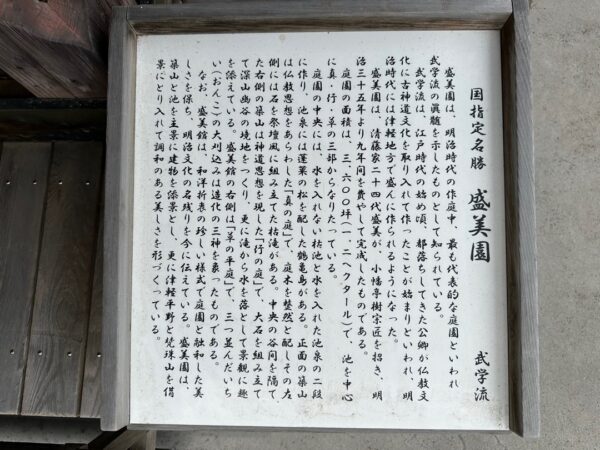 国指定名勝 盛美園 武学流
盛美園は、明治時代の作庭中、最も代表的な庭園といわれ
武学流の真髄を示したものとして知られている。
武学流は、江戸時代の始め頃、都落ちしてきた公卿が仏教文
化に古神道文化を取り入れて作ったことが始まりといわれ、明
治時代には津軽地方で盛んに作られるようになった。
盛美園は、清藤家二十四代盛美が、小幡亭樹宗匠を招き、明
治三十五年より九年間を費やして完成したものである
庭園の面積は、三、六〇〇坪(一、二ヘクタール)で、池を中心
に真・行・草の三部からなりたっている。
庭園の中央には、水を入れない枯池と水を入れた池泉の二段
に作り、池泉には蓬莱の松を配した鶴亀島がある。正面の築山
は仏教思想をあらわした「真の庭」で、庭木を整然と配しその左
側には石を祭壇風に組み立てた枯滝がある。中央の谷間を隔て
た右側の築山は神道思想を現した「行の庭」で、大石を組み立て
て深山幽谷の境地をつくり、更に滝から水を落として景観に趣
を添えている。盛美館の右側は「草の平庭」で、三つ並んだいち
い(おんこ)の大刈込みは造化の三神を表ったものである。
なお、盛美館は、和洋折衷の珍しい様式で庭園と融和した美
しさを保ち、明治文化の名残りを今に伝えている。盛美園は、
築山と池を主景に建物を添景とし、更に津軽平野と梵珠山を借
景にとり入れて調和のある美しさを形づくっている。